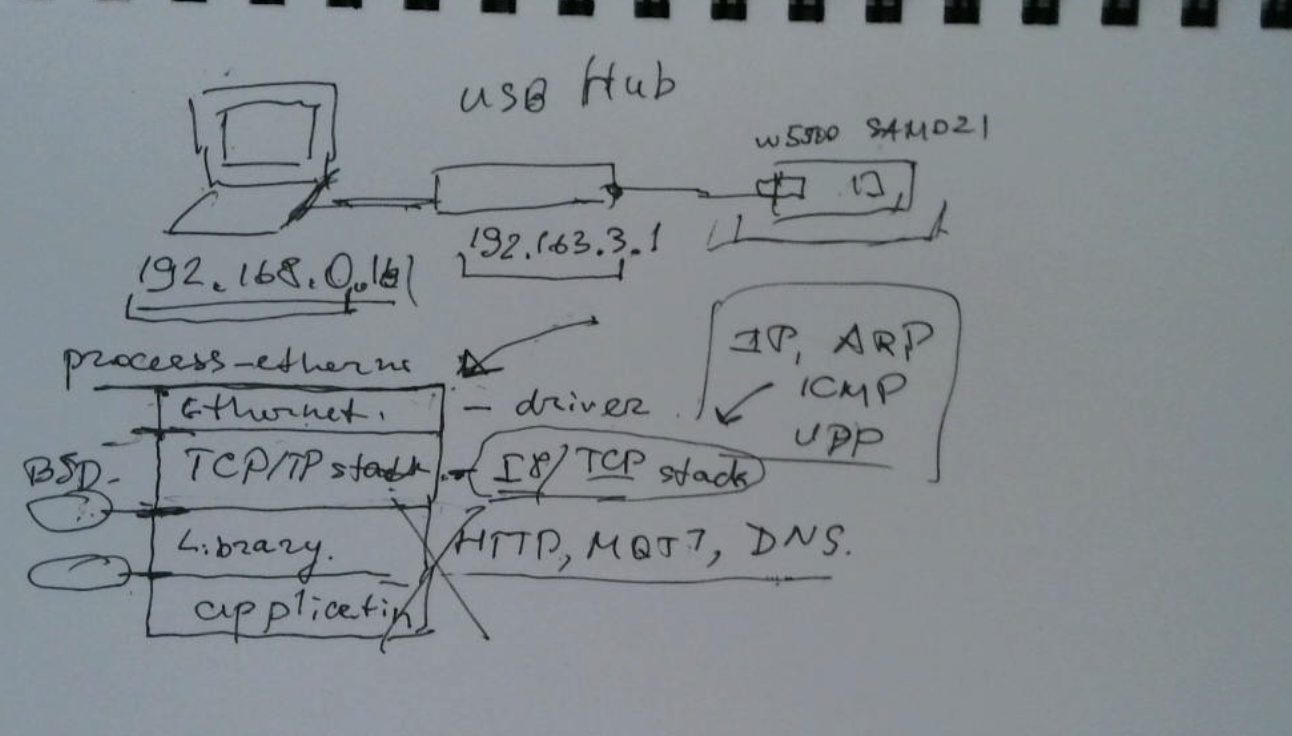 USB Hub
W5500 SAMD21
192.163.3.1
192.168.0.16
IP, ARP
process-etherne
ICMP
Ethernet. - driver
UDP
BSD- TCP/IP stack - IP/TCP stack
Library. HTTP, MQTT, DNS.
applicatin